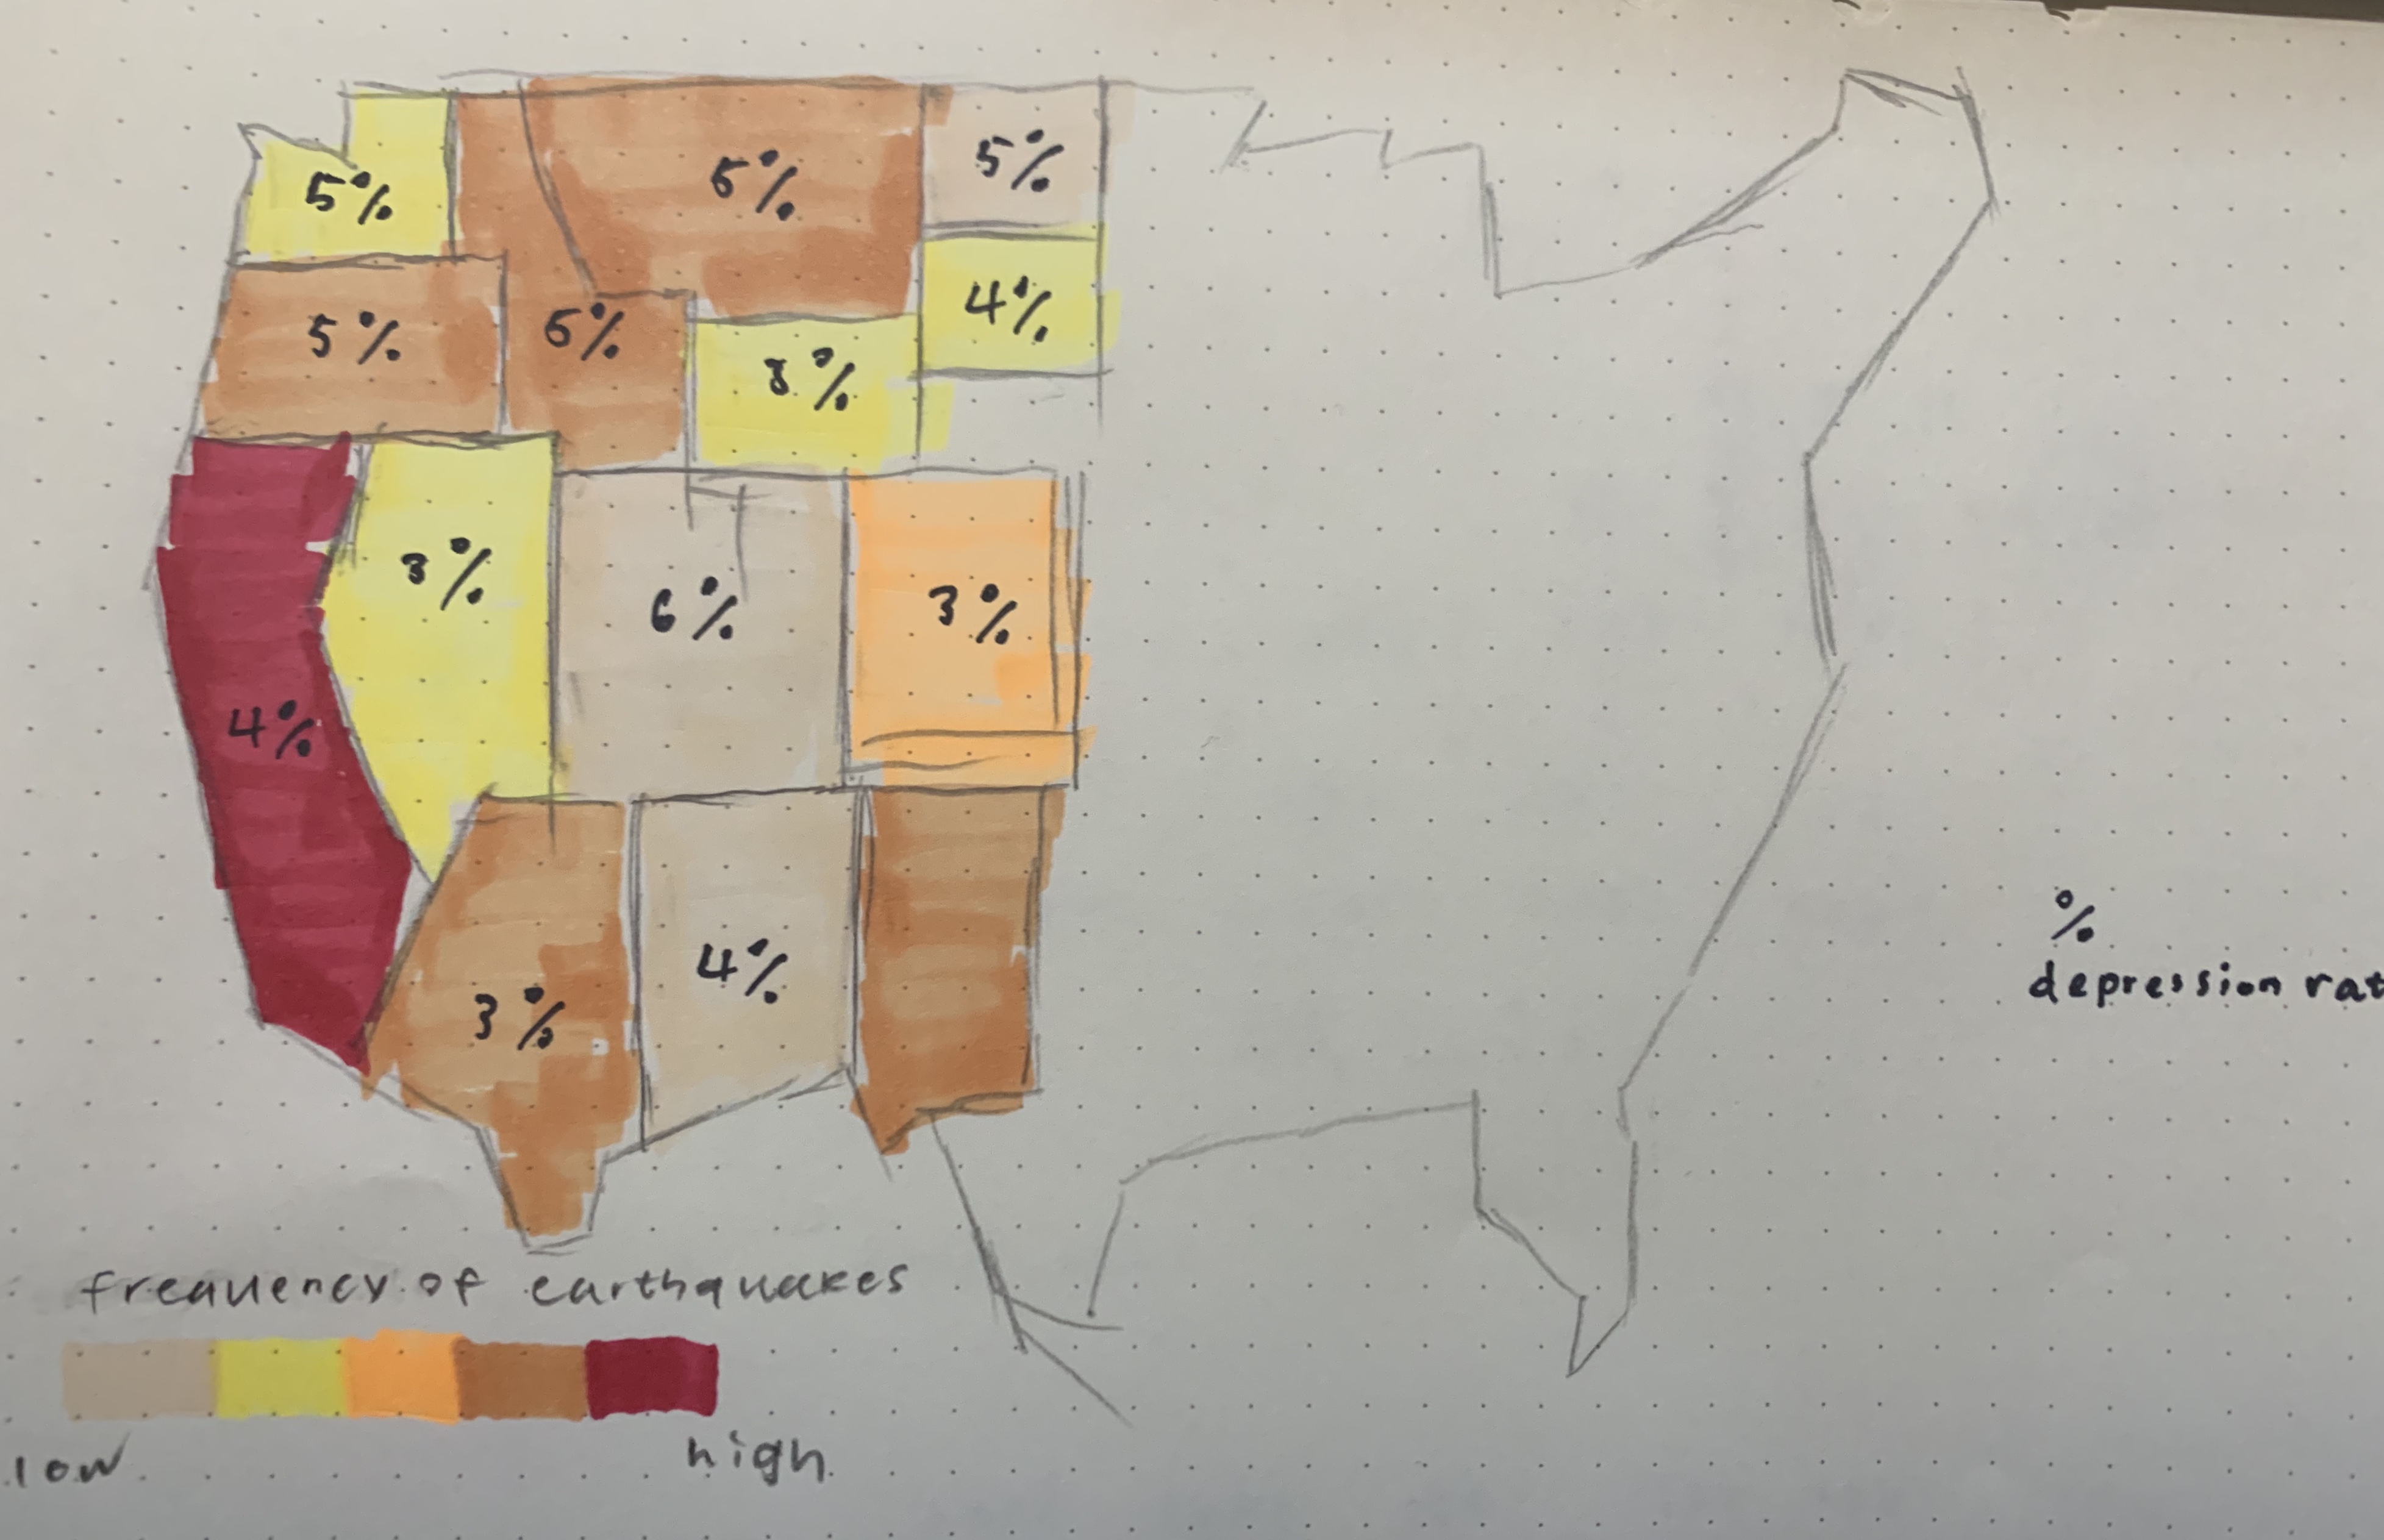 5%
5%
5%
4%
5%
3%
3%
6%
3%
4%
4%
3%
%
depression rat
frequency of earthquakes
low
high